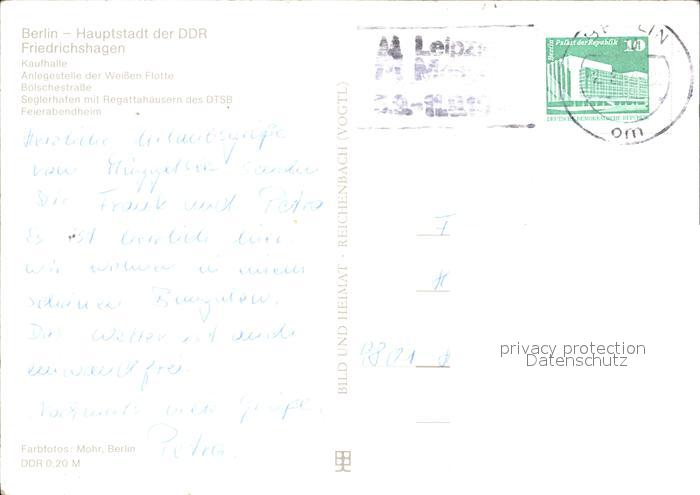 Berlin – Hauptstadt der DDR
Friedrichshagen
Kaufhalle
Anlegestelle der Weißen Flotte
Bölschestraße
Seglerhafen mit Regattahäusern des DTSB
Feierabendheim
Herzliche Urlaubsgrüße
vom Müggelsee senden
Dir Frank und Petra
Es ist herrlich hier.
wir wohnen in einem
schönen Bungalow.
Das Wetter ist auch
einwandfrei.
Nochmals viele Grüße,
Petra.
Farbfotos: Mohr, Berlin
DDR 0,20 M
BILD UND HEIMAT · REICHENBACH (VOGTL)
M Leipz
Berlin Palast der Republik 10
DEUTSCHE DEMOKRATISCHE REPUBLIK
om
F
H
9801
privacy protection
Datenschutz